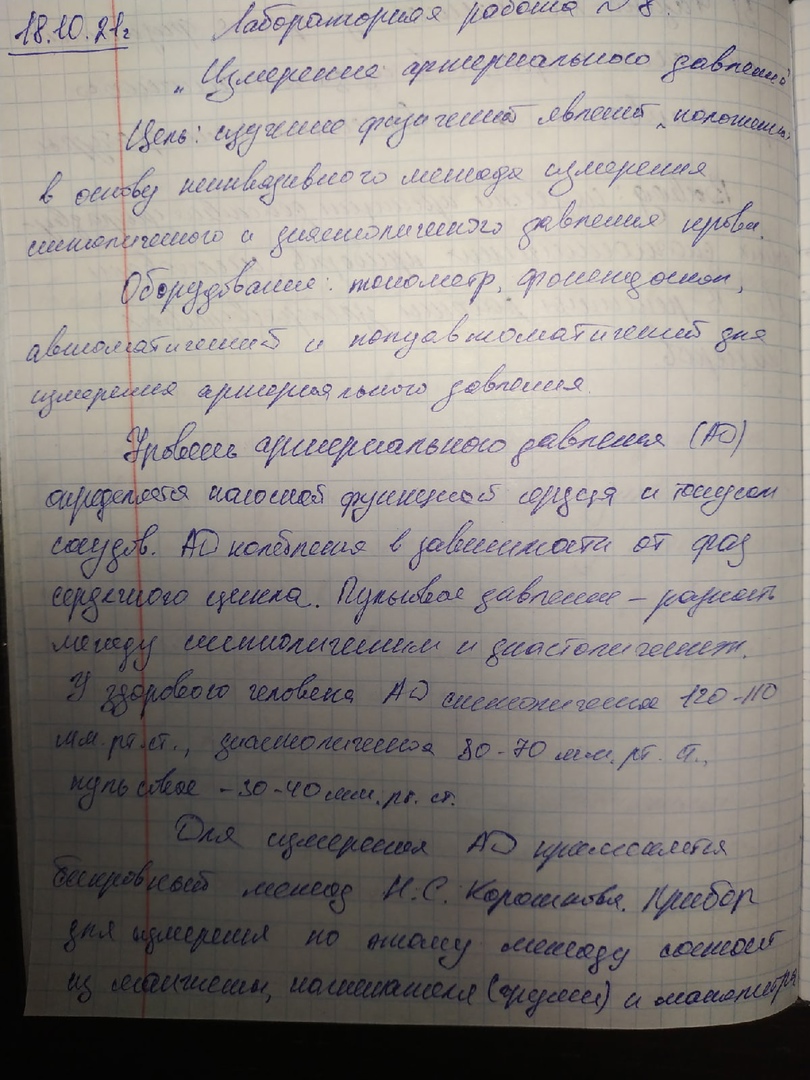 18.10.21г Лабораторная работа №8.
„Измерение артериального давления
Цель: изучение физический явлений, положенных
в основу неинвазивного метода измерения
систолического и диастолического давления крови.
Оборудование: тонометр, фонендоскоп,
автоматический и полуавтоматический для
измерения артериального давления.
Уровень артериального давления (АD)
определяется насосной функцией сердца и тонусом
сосудов. АD колебления в зависимости от фаз
сердечного цикла. Пульсовое давление – разность
между систолическим и диастолическим.
У здорового человека АD систолическое 120-110
мм.рт.ст., диастолическое 80-70 мм.рт.ст.,
пульсовое – 30-40 мм.рт.ст.
Для измерения АD применяется
бескровный метод Н.С. Короткова. Прибор
для измерения по этому методу состоит
из манжеты, нагнетателя (груши) и манометра